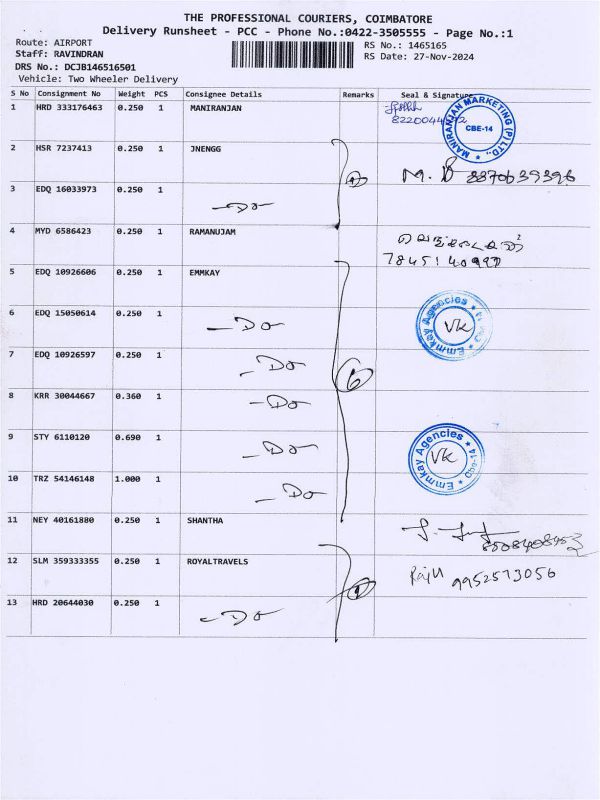 THE PROFESSIONAL COURIERS, COIMBATORE
Delivery Runsheet - PCC - Phone No.:0422-3505555 - Page No.:1
Route: AIRPORT
Staff: RAVINDRAN
DRS No.: DCJB146516501
Vehicle: Two Wheeler Delivery
RS No.: 1465165
RS Date: 27-Nov-2024
S No Consignment No Weight PCS Consignee Details Remarks Seal & Signature
1 HRD 333176463 0.250 1 MANIRANJAN
MANIRANJAN MARKETING (P) LTD.,
CBE-14
2 HSR 7237413 0.250 1 JNENGG
M. B 8870639396
3 EDQ 16033973 0.250 1 -Do-
4 MYD 6586423 0.250 1 RAMANUJAM
5 EDQ 10926606 0.250 1 EMMKAY
6 EDQ 15050614 0.250 1 -Do-
Emmkay Agencies
VK
7 EDQ 10926597 0.250 1 -Do-
8 KRR 30044667 0.360 1 -Do-
9 STY 6110120 0.690 1 -Do-
Emmkay Agencies Cbe-14
VK
10 TRZ 54146148 1.000 1 -Do-
11 NEY 40161880 0.250 1 SHANTHA
12 SLM 359333355 0.250 1 ROYALTRAVELS
Raju 9952573056
13 HRD 20644030 0.250 1 -Do-